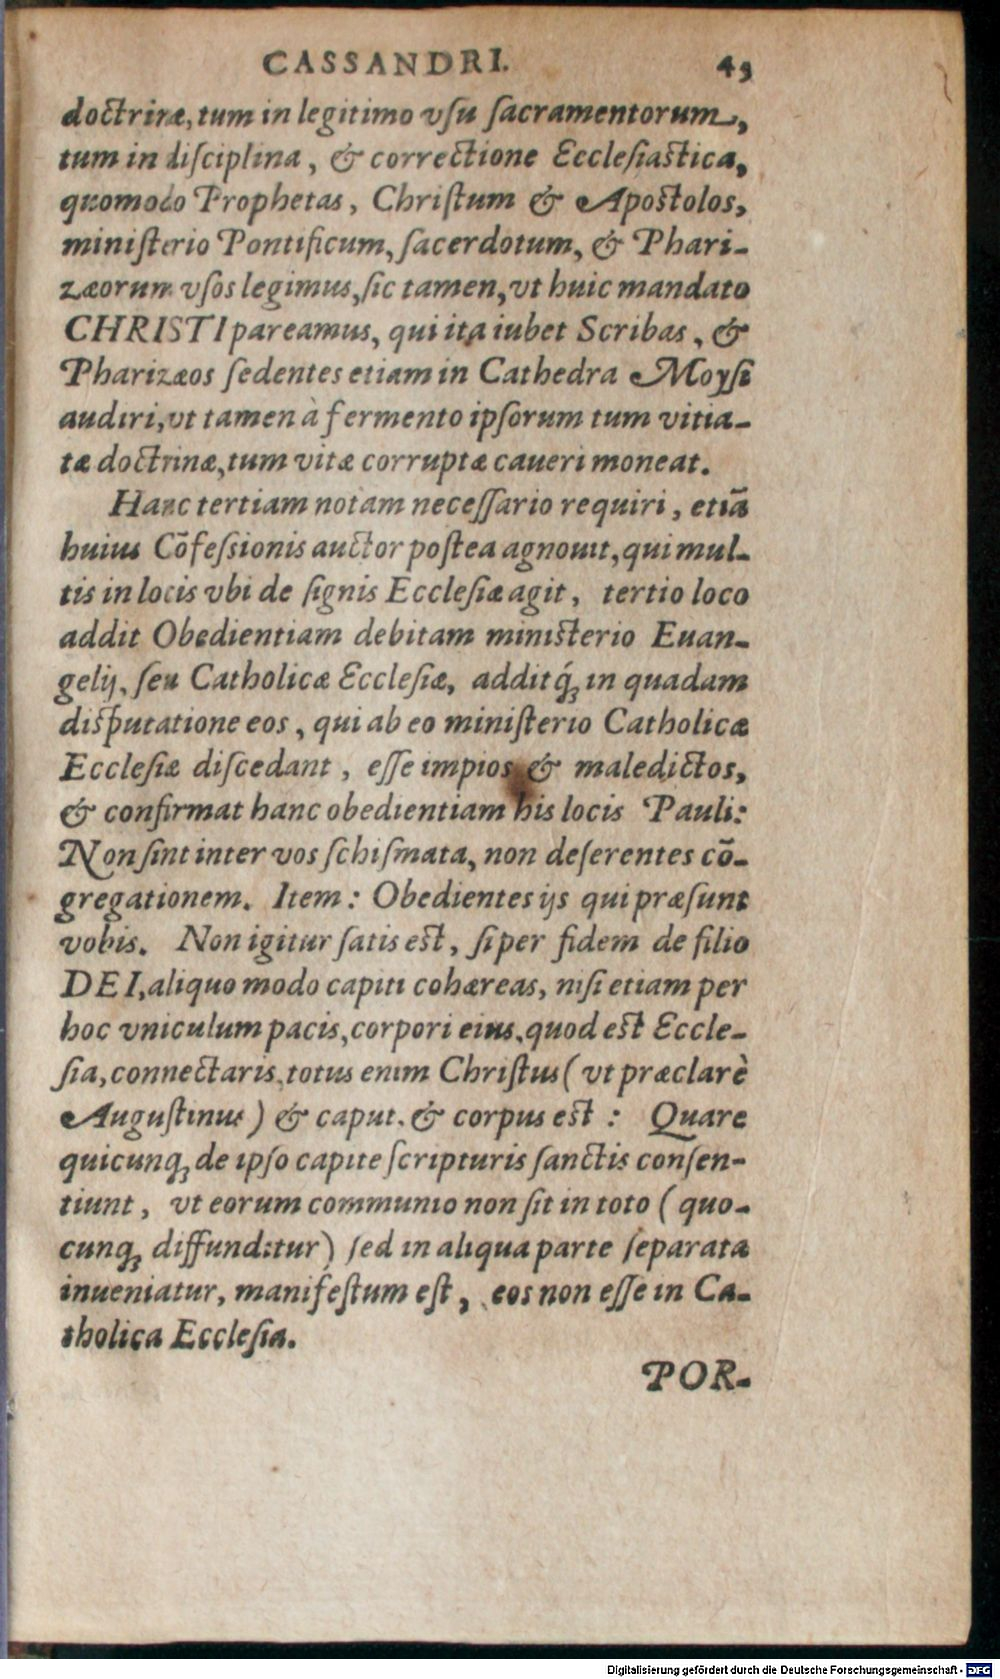 CASSANDRI. 49
doctrinæ, tum in legitimo vſu ſacramentorum,
tum in diſciplina, & correctione Eccleſiaſtica,
quomodo Prophetas, Chriſtum & Apoſtolos,
miniſterio Pontificum, ſacerdotum, & Phari-
zæorum vſos legimus, ſic tamen, vt huic mandato
CHRISTI pareamus, qui ita iubet Scribas, &
Pharizæos ſedentes etiam in Cathedra Moyſi
audiri, vt tamen à fermento ipſorum tum vitia-
tæ doctrinæ, tum vitæ corruptæ caueri moneat.
Hanc tertiam notam neceſſario requiri, etiã
huius Cõfeſsionis auctor poſtea agnouit, qui mul-
tis in locis vbi de ſignis Eccleſiæ agit, tertio loco
addit Obedientiam debitam miniſterio Euan-
gelij, ſeu Catholicæ Eccleſiæ, additq́ꝫ in quadam
diſputatione eos, qui ab eo miniſterio Catholicæ
Eccleſiæ diſcedant, eſſe impios & maledictos,
& confirmat hanc obedientiam his locis Pauli:
Non ſint inter vos ſchiſmata, non deſerentes cõ-
gregationem. Item: Obedientes ijs qui præſunt
vobis. Non igitur ſatis eſt, ſi per fidem de filio
DEI, aliquo modo capiti cohæreas, niſi etiam per
hoc vniculum pacis, corpori eius, quod eſt Eccle-
ſia, connectaris, totus enim Chriſtus (vt præclarè
Auguſtinus) & caput, & corpus eſt: Quare
quicunqꝫ de ipſo capite ſcripturis ſanctis conſen-
tiunt, vt eorum communio non ſit in toto (quo-
cunqꝫ diffunditur) ſed in aliqua parte ſeparata
inueniatur, manifeſtum eſt, eos non eſſe in Ca-
tholica Eccleſia.
POR-
Digitalisierung gefördert durch die Deutsche Forschungsgemeinschaft - DFG